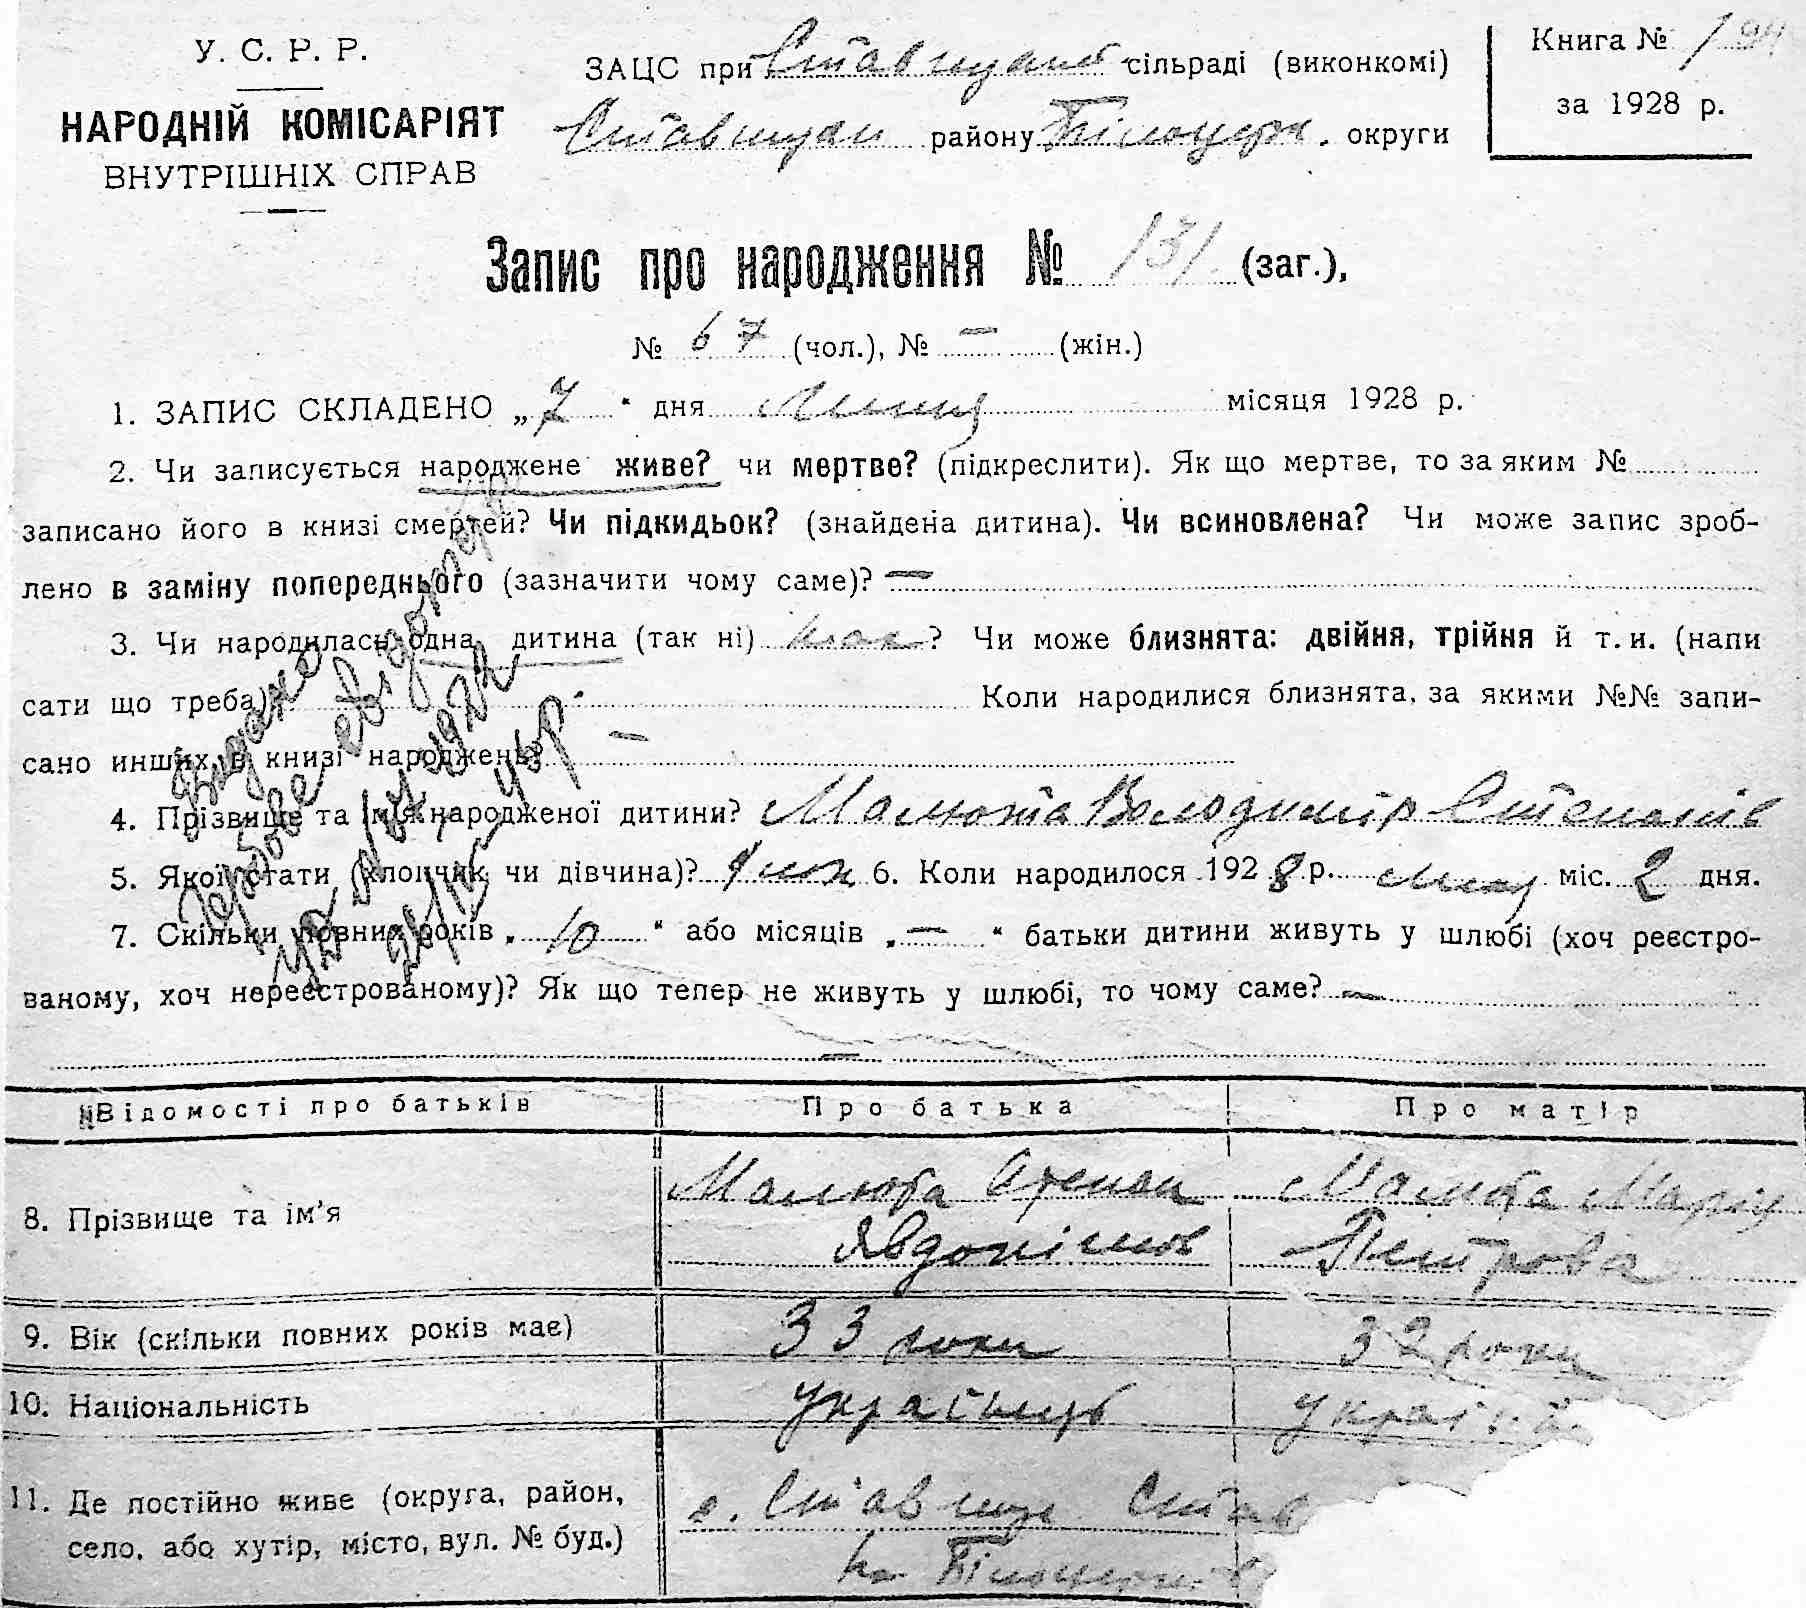 У. С. Р. Р.
НАРОДНІЙ КОМІСАРІЯТ
ВНУТРІШНІХ СПРАВ
ЗАЦС при Ставищанс сільраді (виконкомі)
Ставищан району Білоцерк. округи
Книга №
за 1928 р.
Запис про народження № 131 (заг.),
№ 67 (чол.), № — (жін.)
1. ЗАПИС СКЛАДЕНО „7“ дня Липця місяця 1928 р.
2. Чи записується народжене живе? чи мертве? (підкреслити). Як що мертве, то за яким №
записано його в книзі смертей? Чи підкидьок? (знайдена дитина). Чи всиновлена? Чи може запис зроб-
лено в заміну попереднього (зазначити чому саме)? —
3. Чи народилась одна дитина (так ні) так? Чи може близнята: двійня, трійня й т. и. (напи
сати що треба) Коли народилися близнята, за якими №№ запи-
сано инших в книзі народжень? —
4. Прізвище та ім'я народженої дитини? Малюта Володимир Степанів
5. Якої стати (хлопчик чи дівчина)? 6. Коли народилося 1928 р. Липц міс. 2 дня.
7. Скільки повних років „10“ або місяців „—“ батьки дитини живуть у шлюбі (хоч реєстро-
ваному, хоч нереєстрованому)? Як що тепер не живуть у шлюбі, то чому саме? —
—
Видано
повторне свідоцтво
Відомості про батьків Про батька Про матір
8. Прізвище та ім'я Малюта Степан Малюта Марія
Явдокімов Петрова
9. Вік (скільки повних років має) 33 роки 32 роки
10. Національність українець україн
11. Де постійно живе (округа, район, с. Ставище Став
село, або хутір, місто, вул. № буд.) Білоцерків